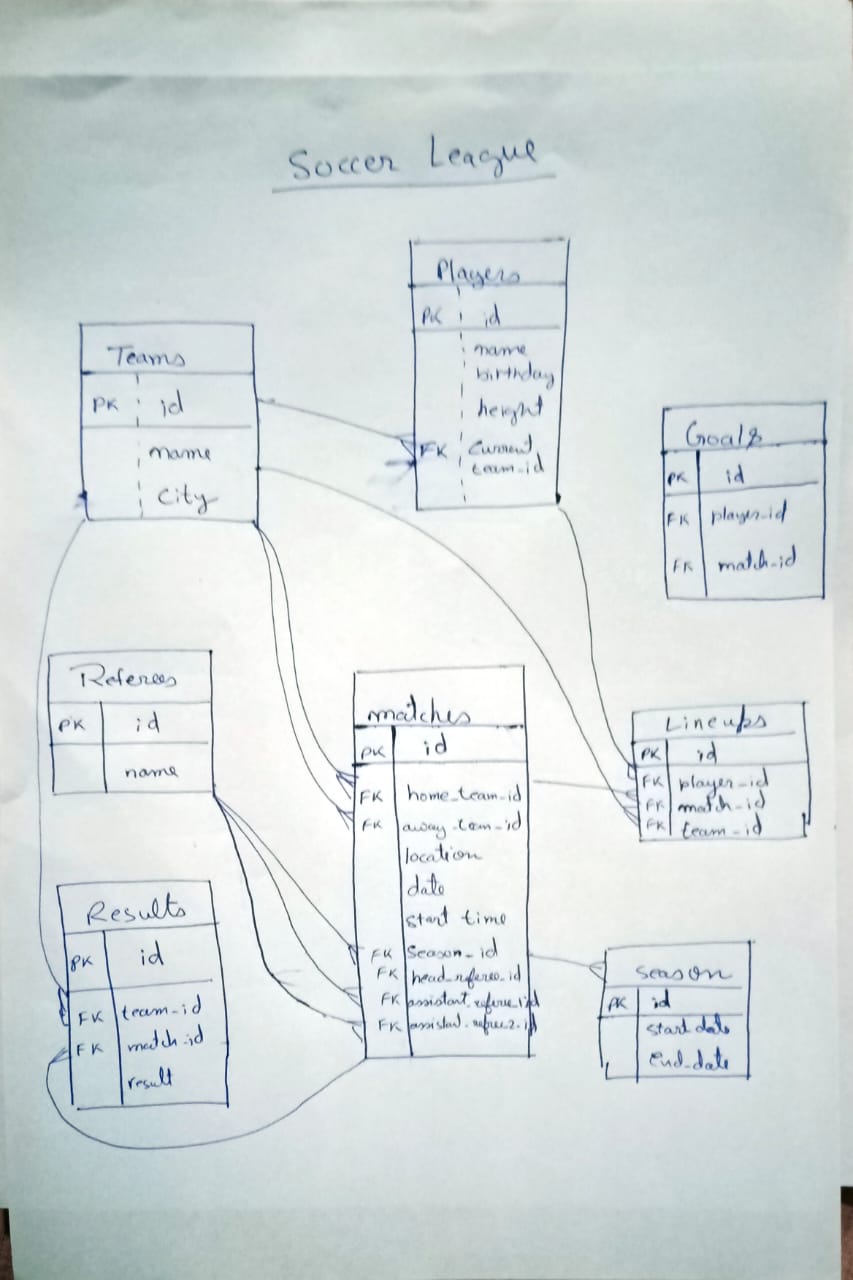 Soccer League
Players
PK id
name
birthday
height
FK Current
team_id
Teams
PK id
name
City
Goals
PK id
FK player_id
FK match_id
Referees
PK id
name
matches
PK id
FK home_team_id
FK away_team_id
location
date
start time
FK Season_id
FK head_referee_id
FK assistant_referee_1_id
FK assistant_referee_2_id
Lineups
PK id
FK player_id
FK match_id
FK team_id
Results
PK id
FK team_id
FK match_id
result
Season
PK id
start date
End_date